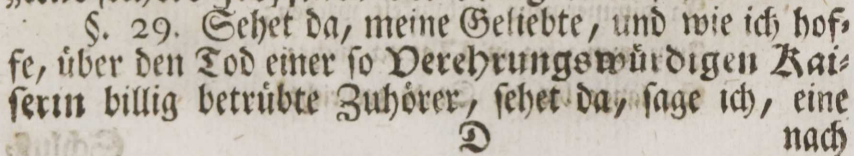 §. 29. Sehet da, meine Geliebte, und wie ich hof-
fe, über den Tod einer so Verehrungswürdigen Kai-
serin billig betrübte Zuhörer, sehet da, sage ich, eine
D nach